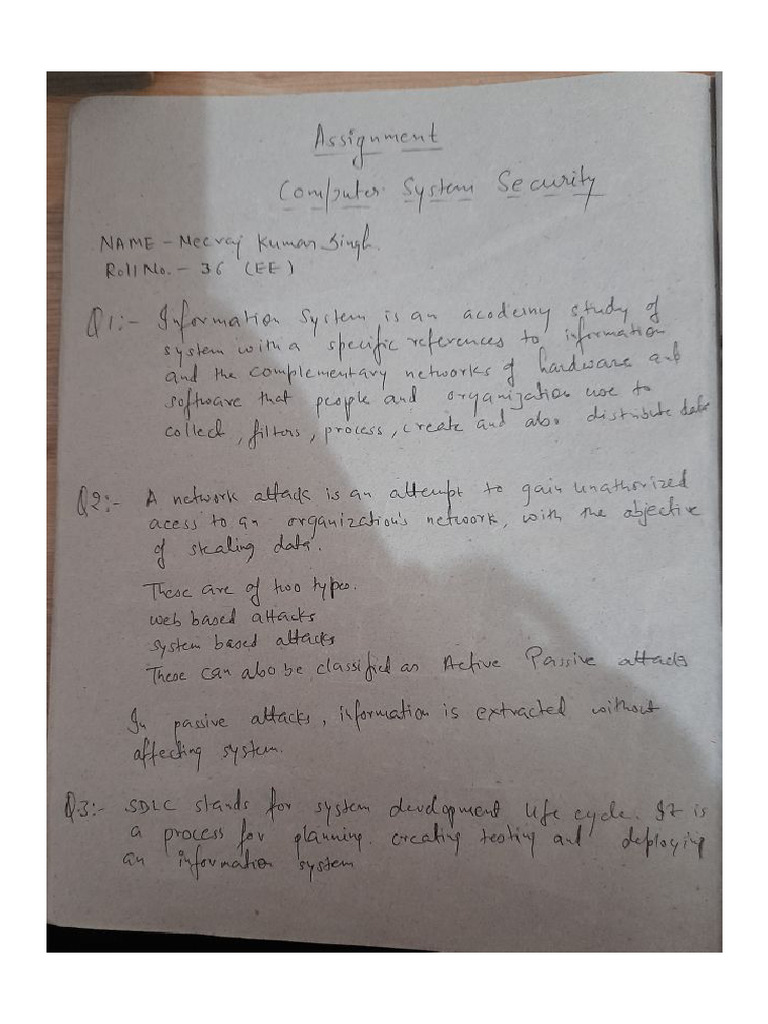 Assignment
Computer System Security
NAME - Neeraj Kumar Singh.
Roll No. - 36 (EE)
Q1:- Information System is an acodemy study of
system with a specific references to information
and the complementary networks of hardware and
software that people and organization use to
collect, filters, process, create and also distribute data
Q2:- A network attack is an attempt to gain unathorized
acess to an organization's network, with the objective
of stealing data.
These are of two types.
web based attacks
system based attacks
These can also be classified as Active Passive attacks
In passive attacks, information is extracted without
affecting system.
Q3:- SDLC stands for system development life cycle. It is
a process for planning. creating testing and deploying
an information system